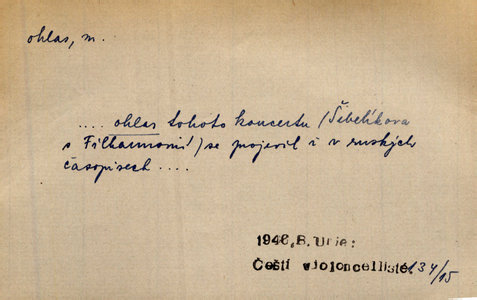 ohlas, m.
.... ohlas tohoto koncertu (Šibelíkova
s Filharmonií) se projevil i v ruských
časopisech ....
1946, B. Urie:
Čeští violoncellisté 134/15